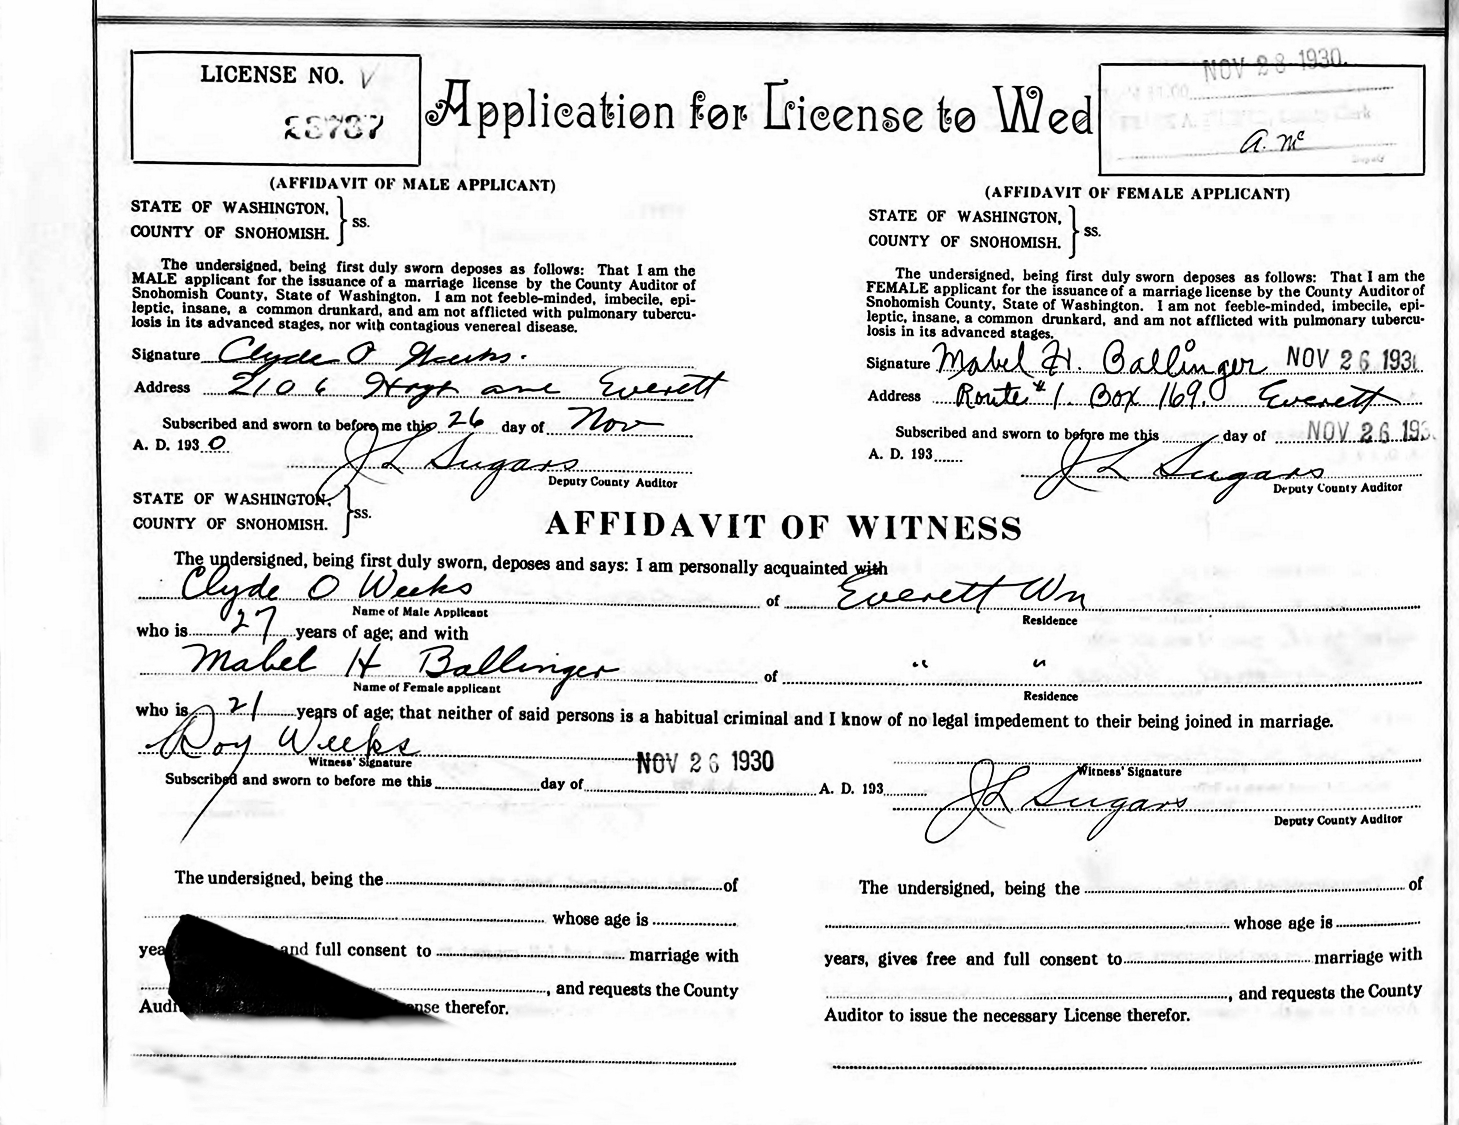 LICENSE NO. V
Application for License to Wed
NOV 28 1930.
A. Mc
(AFFIDAVIT OF MALE APPLICANT)
STATE OF WASHINGTON,
COUNTY OF SNOHOMISH.
ss.
The undersigned, being first duly sworn deposes as follows: That I am the
MALE applicant for the issuance of a marriage license by the County Auditor of
Snohomish County, State of Washington. I am not feeble-minded, imbecile, epi-
leptic, insane, a common drunkard, and am not afflicted with pulmonary tubercu-
losis in its advanced stages, nor with contagious venereal disease.
Signature Clyde O Weeks.
Address 2106 Hoyt ave Everett
Subscribed and sworn to before me this 26 day of Nov
A. D. 1930
J L Sugars
Deputy County Auditor
(AFFIDAVIT OF FEMALE APPLICANT)
STATE OF WASHINGTON,
COUNTY OF SNOHOMISH.
ss.
The undersigned, being first duly sworn deposes as follows: That I am the
FEMALE applicant for the issuance of a marriage license by the County Auditor of
Snohomish County, State of Washington. I am not feeble-minded, imbecile, epi-
leptic, insane, a common drunkard, and am not afflicted with pulmonary tubercu-
losis in its advanced stages.
Signature Mabel H. Ballinger NOV 26 193
Address Route #1. Box 169. Everett
Subscribed and sworn to before me this day of NOV 26 193
A. D. 193
J L Sugars
Deputy County Auditor
STATE OF WASHINGTON,
COUNTY OF SNOHOMISH.
ss.
AFFIDAVIT OF WITNESS
The undersigned, being first duly sworn, deposes and says: I am personally acquainted with
Clyde O Weeks of Everett Wn
Name of Male Applicant Residence
who is 27 years of age; and with
Mabel H Ballinger of " "
Name of Female applicant Residence
who is 21 years of age; that neither of said persons is a habitual criminal and I know of no legal impedement to their being joined in marriage.
Roy Weeks
Witness' Signature NOV 26 1930 Witness' Signature
Subscribed and sworn to before me this day of A. D. 193
J L Sugars
Deputy County Auditor
The undersigned, being the of
whose age is
yea and full consent to marriage with
, and requests the County
Aud nse therefor.
The undersigned, being the of
whose age is
years, gives free and full consent to marriage with
, and requests the County
Auditor to issue the necessary License therefor.